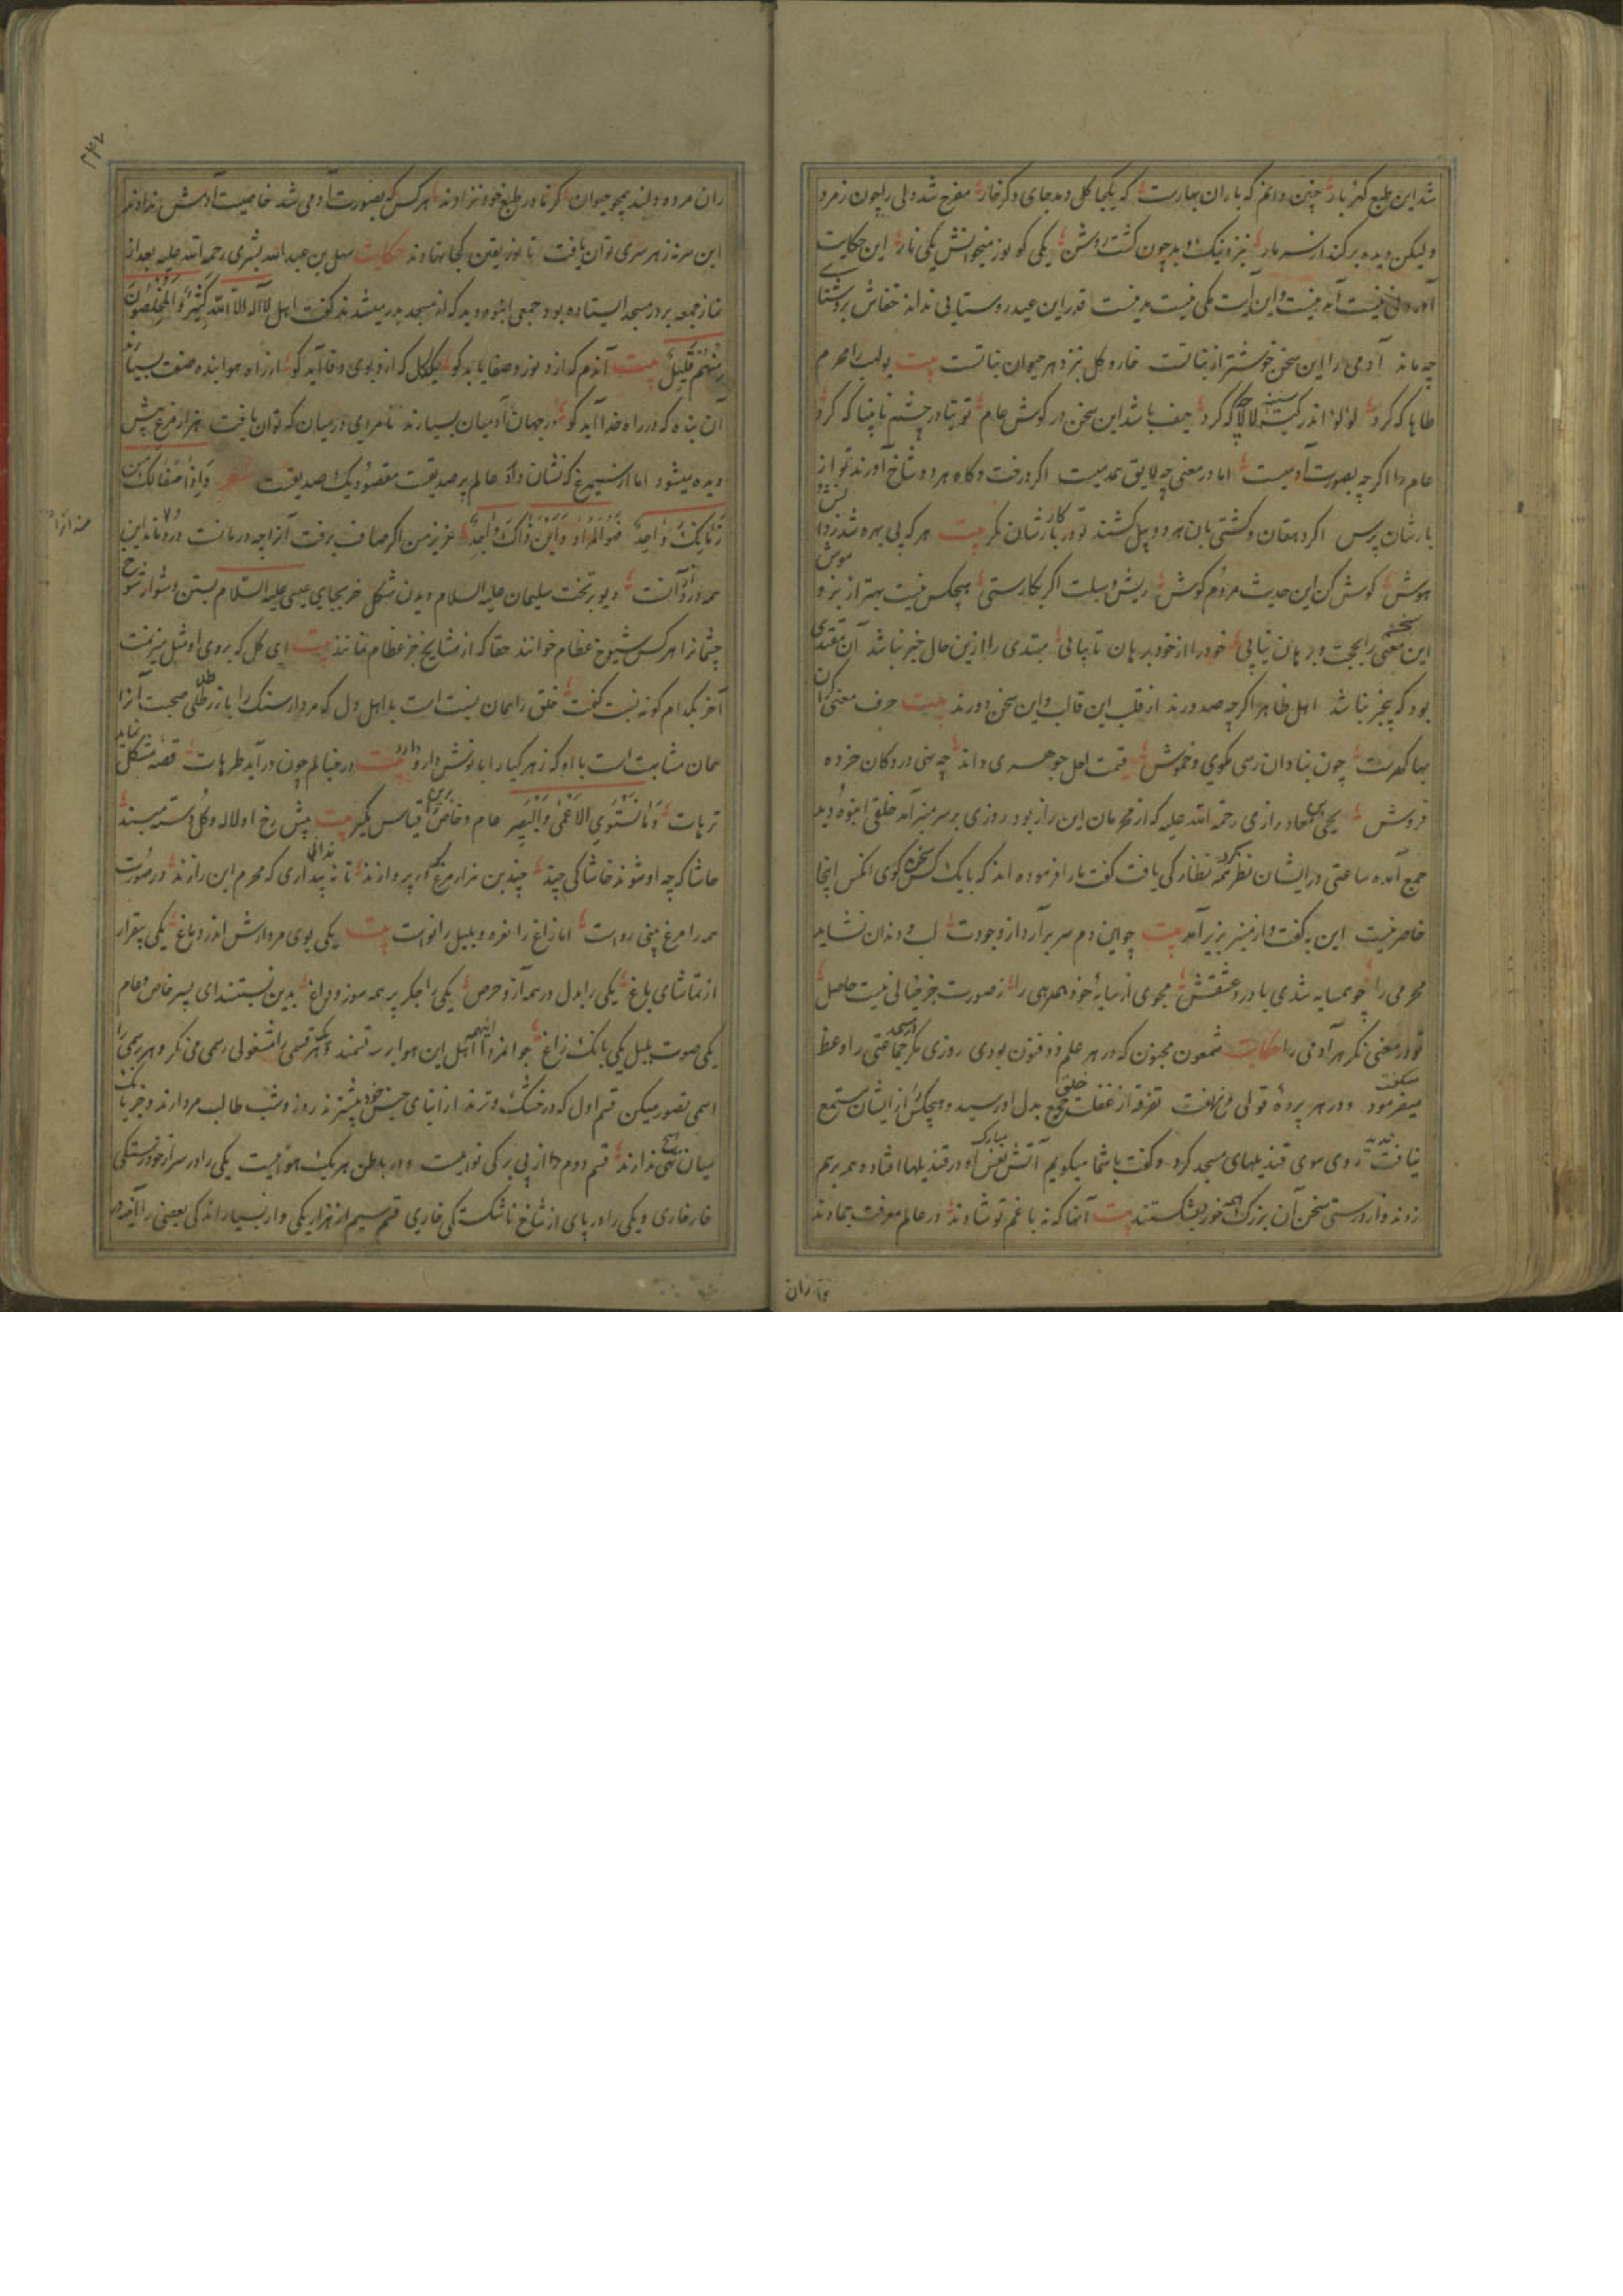 شد این طبع کهربار چنین دانم که باران بهارست که یکجا گل دهد جای دگر خار مفرح شد ولی را چون زمرد
ولیکن دیده برکند از سر مار بنزد نیک و بد چون گشت روشن یکی کو نور میخوانش یکی نار این حکایت
نیست مدنیست قدر این عید روستایی نداند خفاش بروشنایی
چه ماند آدمی را این سخن خوشتر از نباتست خار و گل بنزد هر حیوان نباتست بیت بولهب را محرم
طاها که کرد لولو اندر لالا که کرد حیف باشد این سخن در گوش عام توتیا در چشم نابینا که کرد
عام را اگرچه بصورت آدمیست اما در معنی چه لایق همدمیست اگر درخت و گاه هر دو شاخ آورند تو از
بارشان پرس اگر دهقان و کشتی بان هر دو بیل کشند تو در کارشان نگر بیت هر که بی بهره شد ز دانش
هوش گوش کن این حدیث مردم گوش ریش و سبلت اگر بکارستی هیچکس نیست بهتر از بز و موش
این معنی را بحجت و برهان نیابی خود را از خود برهان تا بیابی مبتدی را ازین حال خبر نباشد آن مقتدی
بود که بیخبر نباشد اهل ظاهر اگرچه صدرند از قلب این قالب و این سخن دورند بیت حرف معنی
بها گهریست چون بنادان رسی مگوی و خموش قیمت لعل جوهری داند چه نهی در دکان خرده
فروش یحیی معاذ رازی رحمة الله علیه که از محرمان این راز بود روزی بر سر منبر آمد خلقی انبوه دید
جمع آمده ساعتی در ایشان نظر کرد گفت ما را فرموده اند که با یک کس سخن گوی آنکس اینجا
حاضر نیست این بگفت و از منبر بزیر آمد بیت چو این دم سر برآرد از وجودت لب و دندان نشاید
محرمی را چو همسایه شدی با درد عشقش مجوی از سایهٔ خود همدمی را ز صورت جز خیالی نیست حاصل
تو در معنی نگر هر آدمی را حکایت شمعون مجنون که در هر علم ذوفنون بودی روزی مگر جماعتی را وعظ
میفرمود و در هر پرده قولی میگفت تفرقه از غفلت جمع خلق بدل او رسید و هیچکس از ایشان مستمع
نیافت روی سوی قندیلهای مسجد کرد و گفت با شما میگویم آتش نفس مبارک او در قندیلها افتاد و همه بر هم
زدند و از درستی سخن آن بزرگ همه خود بشکستند بیت آنها که نه با غم تو شادند در عالم معرفت جمادند
ران مرده دلند همچو حیوان کز نادر طبع خود نزادند هر کس که بصورت آدمی شد خاصیت آدمش ندادند
این مرتبه ز هر سری توان یافت تا نور یقین کجا نهادند حکایت سهل بن عبد الله تستری رحمة الله علیه بعد از
نماز جمعه بر در مسجد ایستاده بود جمعی انبوه دید که از مسجد بدر میشدند گفت اهل لا اله الا الله کثیر و المخلصون
منهم قلیل بیت آندم که ازو نور و صفا یابد کو یک گل که ازو بوی وفا آید کو از راه هوا بنده صفت بسیارند
آن بنده که در راه خدا آید کو در جهان آدمیان بسیارند تا مردی در میان که توان یافت هزار مرغ بیش
دیده میشود اما از سیمرغ که نشان داد عالم پر صدیقست مقصود یک صدیقست شعر وإذا صفا لک من
زمانک واحد فهو المراد وأین ذاک الواحد عزیز من اگر صاف برفت آنرا چه درمانست درد ماند این
همه درد از آنست دیو بر تخت سلیمان علیه السلام دیدن مشکل خر بجای عیسی علیه السلام بستن دشوار شوخ
چشمانرا هر کس شیوخ عظام خوانند حقا که از مشایخ جز عظام نمانند بیت ای گل که بروی او مثل میزنمت
آخر بکدام گونه نسبت کنمت خلق را همان نسبت است با اهل دل که مردار سنگ را با زر طلی صحبت آنرا
همان مشابهت است با او که زهر گیا را با نوش دارو بیت در خیالم چون درآید طرهات قصه مشکل نماید
ترهات وما یستوی الاعمی والبصیر عام و خاص را برین قیاس گیر بیت پیش رخ او لاله و گل دسته مبند
حاشا که چو او شوند خاشاکی چند چندین هزار مرغ که پروازند تا نه پنداری که محرم این رازند در صورت
همه را مرغ بینی رواست اما زاغ را نغره و بلبل را نواست بیت یکی بوی مردارش اندر دماغ یکی بیقرار
از تماشای باغ یکی را بدل در همه آز و حرص یکی را جگر پر همه سوز و داغ بدین نسبتند ای پسر خاص و عام
یکی صوت بلبل یکی بانگ زاغ جوانمردا اهل این هوا بر سه قسمند هر قسمی را مشغولی رسمی می نگر و هر رسمی را
اسمی تصور میکن قسم اول که در خشک و ترند از ابنای جنس خود بیشترند روز و شب طالب مردارند و جز بانگ
میان تهی ندارند قسم دوم را از پی برگی نواییست و در باطن هر یک هواییست یکی را در سر از خودرستگی
خارخاری و یکی را در پای از شاخ ناشکستگی خاری قسم سیم از هزار یکی و از بسیار اندکی بعضی را